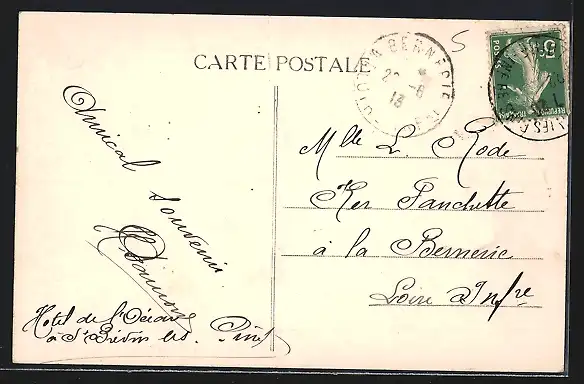 CARTE POSTALE
5
LA BERNERIE
2 -8
13
5
POSTES
Amical souvenir
Hotel de l'Océan
à St Brévin les Pins
Mlle L. Rode
Ker Fanchette
à la Bernerie
Loire Infre